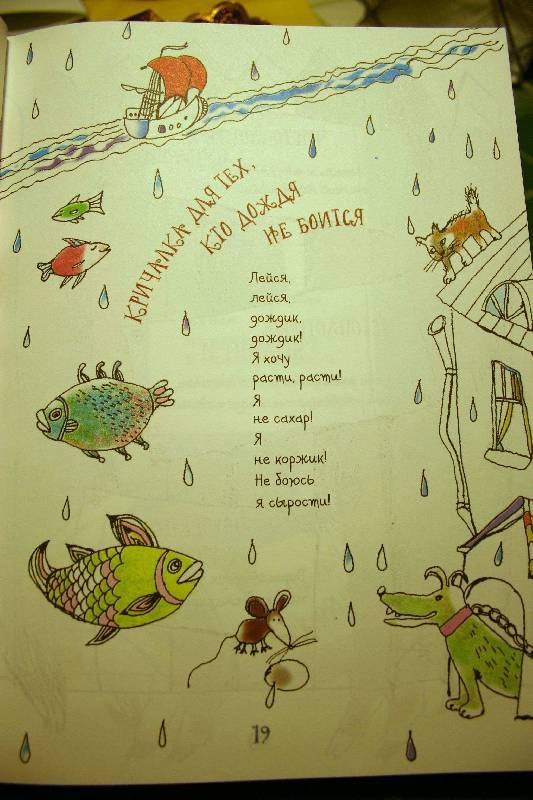 КРИЧАЛКА ДЛЯ ТЕХ,
КТО ДОЖДЯ
НЕ БОИТСЯ
Лейся,
лейся,
дождик,
дождик!
Я хочу
расти, расти!
Я
не сахар!
Я
не коржик!
Не боюсь
я сырости!
19